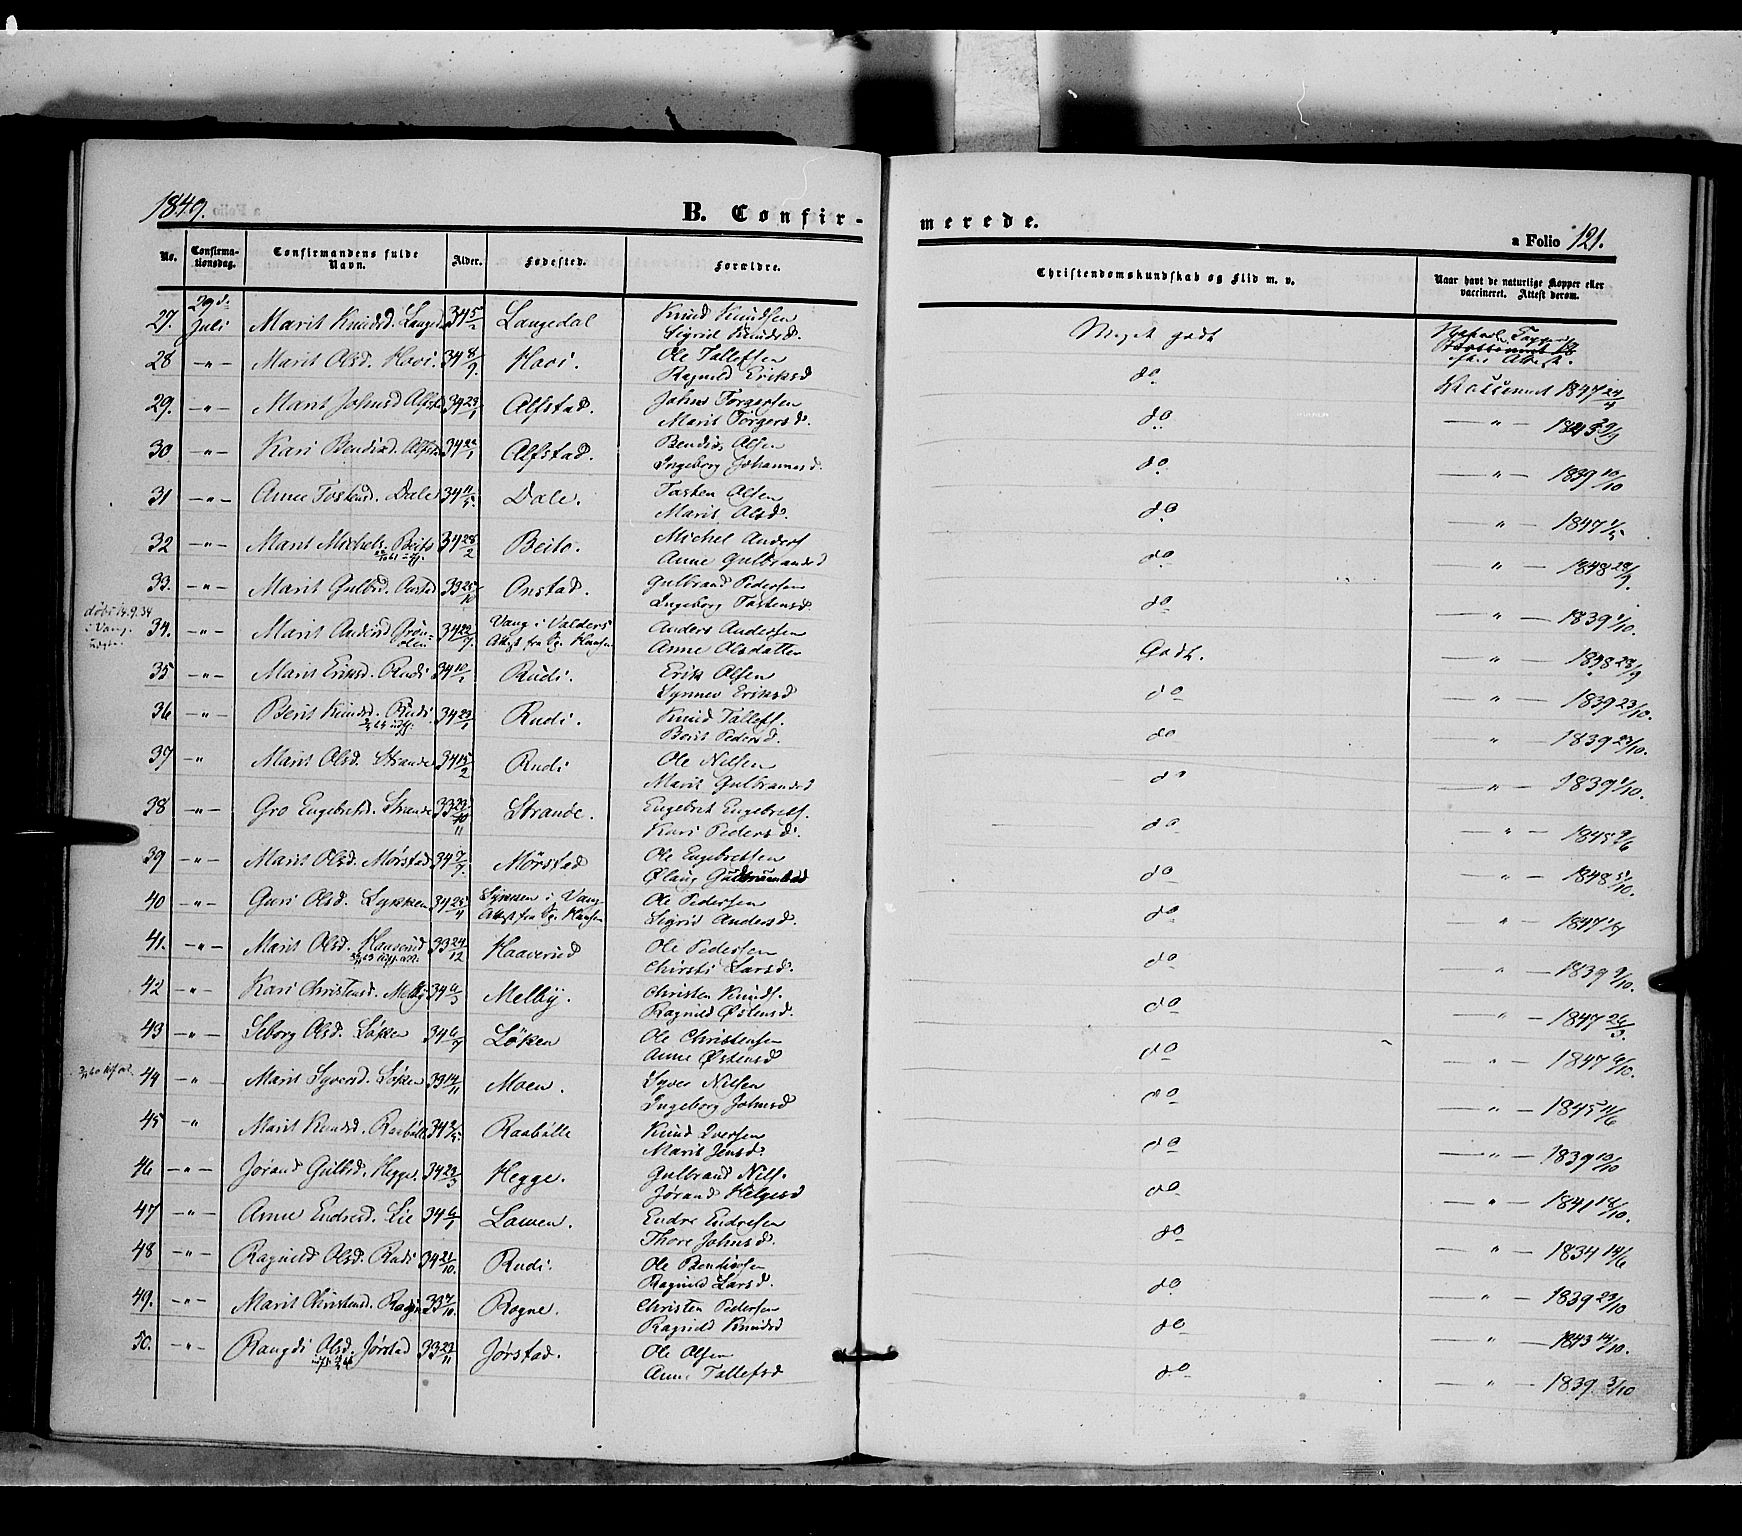 1849.
B. Confir-
merede.
a Folio 121.
No. Confirmationsdag. Confirmandens fulde Navn. Alder. Fødested. Forældre. Christendomskundskab og Flid m. v. Naar havt de naturlige Kopper eller vaccineret. Attest derom.
27. 29de Juli Marit Knudsd. 34 Langedal Knud Knudsen Meget godt
Sigrid Knudsd.
28 -"- Marit Olsd. Havi. 34 8/9 Havi. Ole Tollefsen do
Ragnild Eriksd
29. -"- Marit Johnsd Alfstad 34 23/1 Alfstad. Johns Torgersen do Vaccinert 1847 24/4
Marit Torgersd.
30 -"- Kari Bendixd. Alfstad 34 22/1 Alfstad. Bendix Olsen do
Ingeborg Johannesd.
31 -"- Anne Tostensd. Dale 34 11/5 Dale. Tosten Olsen do — " — 1839 10/10
Marit Olsd.
32 -"- Marit Michels. Beito 34 28/2 Beito. Michel Anders do — " — 1847 1/5
Anne Gulbrandsd
33. -"- Marit Gulbd. Onstad 33 25/10 Onstad. Gulbrand Pedersen do — " — 1848 28/9
Ingeborg Tostensd.
døbt 14.9.34
i Vang.
34. -"- Marit Andersd Grønolen 34 22/7. Vang i Valders Anders Andersen Godt. — " — 1839 1/10.
Attest fra Pr. Hansen Anne Olsdatter
35 -"- Marit Eriksd. Rudi 34 10/1 Rudi. Erik Olsen do — " — 1838 28/9
Synnev Eriksd
36 -"- Berit Knudsd. Rudi 34 23/1 Rudi. Knud Tollefs. do — " — 1839 23/10.
Berit Pedersd.
37 -"- Marit Olsd. Strande 34 15/2 Rudi Ole Nilsen do " 1839 23/10.
Marit Gulbrandsd
38 -"- Gro Engebretsd. Strande 33 Strande. Engebret Engebrets. do — " — 1839 1/10.
Kari Pedersd.
39 -"- Marit Olsd. Mørstad 34 Mørstad Ole Engebretsen do — " — 1845 9/6
Ølaug
40 -"- Guri Olsd. Lykken 34 25/4 i Vang. Ole Pedersen do — " — 1848 5/10.
Attest fra Pr. Hansen Sigrid Andersd.
41. -"- Marit Olsd. Haaverud 33 24/12 Haaverud Ole Pedersen do — " — 1847 1/4
Chirsti Larsd.
42 -"- Kari Christensd. Melby 34 6/3 Melby. Christen Knuds. do — " — 1839 9/10.
Ragnild Østensd.
43 -"- Seborg Olsd. Løken 34 6/7 Løken Ole Christensen do — " — 1847 26/3.
Anne Østensd
44 -"- Marit Syversd. Løken 33 14/11 Moen. Syver Nilsen do — " — 1847 6/10.
Ingeborg Johnsd
45 " Marit Knudsd. Raabølle 34 Raabølle Knud Iversen do — " — 1845 11/6
Marit Jensd.
46 -"- Jørand Gulbd. Hegge. 34 23/3 Hegge. Gulbrand Nils. do — " — 1839 10/10
Jørand Helgesd
47 -"- Anne Endresd. Lie 34 6/1 Lawen. Endre Endresen do — " — 1841 18/10.
Thore Johnsd.
48 -"- Ragnild Olsd. Rudi 34 21/10. Rudi. Ole Bendixsen do — " — 1834 14/6
Ragnild Larsd.
49. -"- Marit Christensd. Rogne 33 Rogne. Christen Pedersen do — " — 1839 23/10
Ragnild Knudsd
50. -"- Rangdi Olsd. Jørstad 33 22/11 Jørstad. Ole Olsen do — " — 1843 14/10.
Anne Tollefsd do — " — 1839 3/10